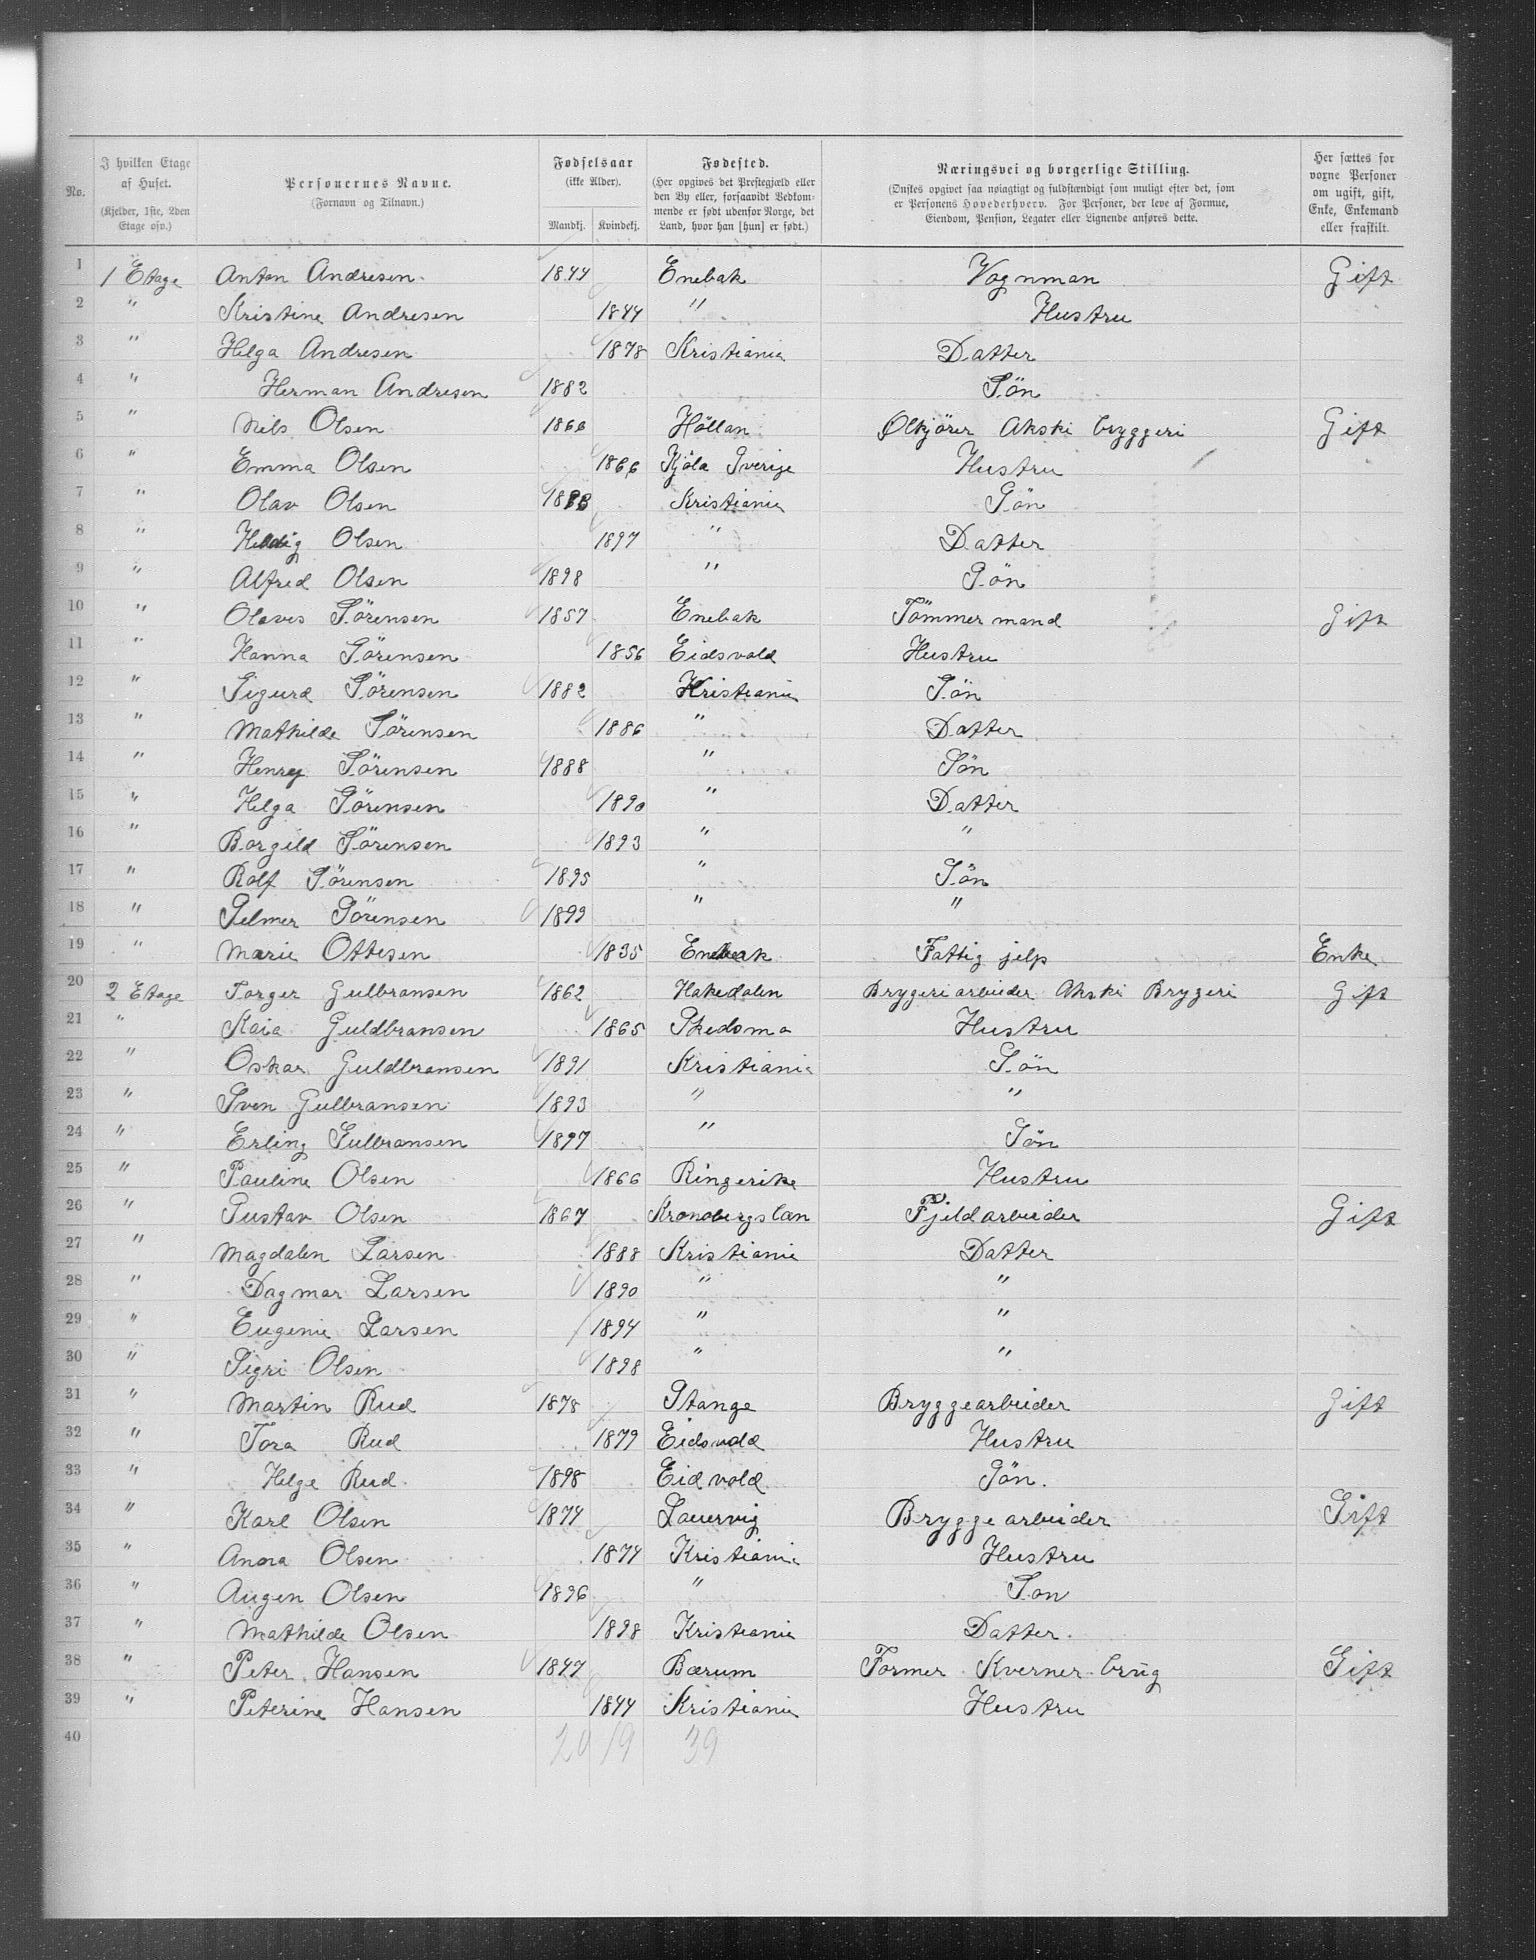 No.
I hvilken Etage af Huset.
(Kjelder, 1ste, 2den Etage osv.)
Personernes Navne.
(Fornavn og Tilnavn.)
Fødselsaar
(ikke Alder).
Mandkj. Kvindekj.
Fødested.
(Her opgives det Prestegjæld eller den By eller, forsaavidt Vedkommende er født udenfor Norge, det Land, hvor han [hun] er født.)
Næringsvei og borgerlige Stilling.
(Ønskes opgivet saa nøiagtigt og fuldstændigt som muligt efter det, som er Personens Hovederhverv. For Personer, der leve af Formue, Eiendom, Pension, Legater eller Lignende anføres dette.
Her sættes for voxne Personer om ugift, gift, Enke, Enkemand eller fraskilt.
1 1 Etage Anton Andresen 1844 Enebak Vognman Gift
2 " Kristine Andresen 1844 " Hustru
3 " Helga Andresen 1878 Kristiania Datter
4 " Herman Andresen 1882 Sön
5 " Nils Olsen 1866 Höllan Ølkjörer Akski bryggeri Gift
6 " Emma Olsen 1866 Kjöla Sverige Hustru
7 " Olav Olsen Kristiania Sön
8 " Olsen 1897 " Datter
9 " Alfred Olsen 1898 " Sön
10 " Olaves Sörensen 1857 Enebak Tömmermand Gift
11 " Hanna Sörensen 1856 Eidsvold Hustru
12 " Sigurd Sörensen 1882 Kristiania Sön
13 " Mathilde Sörensen 1886 " Datter
14 " Henrey Sörensen 1888 " Sön
15 " Helga Sörensen 1890 " Datter
16 " Borgild Sörensen 1893 " "
17 " Rolf Sörensen 1895 " Sön
18 " Selmer Sörensen 1899 " "
19 " Marie Ottesen 1835 Enebak Fattig jelp Enke
20 2 Etage Torger Gulbransen 1862 Hakedalen Brygeriarbeider Akski Brygeri Gift
21 " Kaia Guldbransen 1865 Skedsmo Hustru
22 " Oskar Guldbransen 1891 Kristiania Sön
23 " Sven Gulbransen 1893 " "
24 " Erling Gulbransen 1897 " Sön
25 " Pauline Olsen 1866 Ringerike Hustru
26 " Gustav Olsen 1867 Kronobergslän Fjeldarbeider Gift
27 " Magdalen Larsen 1888 Kristiania Datter
28 " Dagmar Larsen 1890 " "
29 " Eugenie Larsen 1894 " "
30 " Sigri Olsen 1898 " "
31 " Martin Rud 1878 Stange Bryggearbeider Gift
32 " Tora Rud 1879 Eidsvold Hustru
33 " Helge Rud 1898 Eidvold Sön.
34 " Karl Olsen 1874 Lauervig Bryggearbeider Gift
35 " Anna Olsen 1874 Kristiania Hustru
36 " Augen Olsen 1896 " Son
37 " Mathilde Olsen 1898 Kristiania Datter.
38 " Peter Hansen 1847 Bærum Former Kverner brug Gift
39 " Peterine Hansen 1844 Kristiania Hustru
40 20 19 39